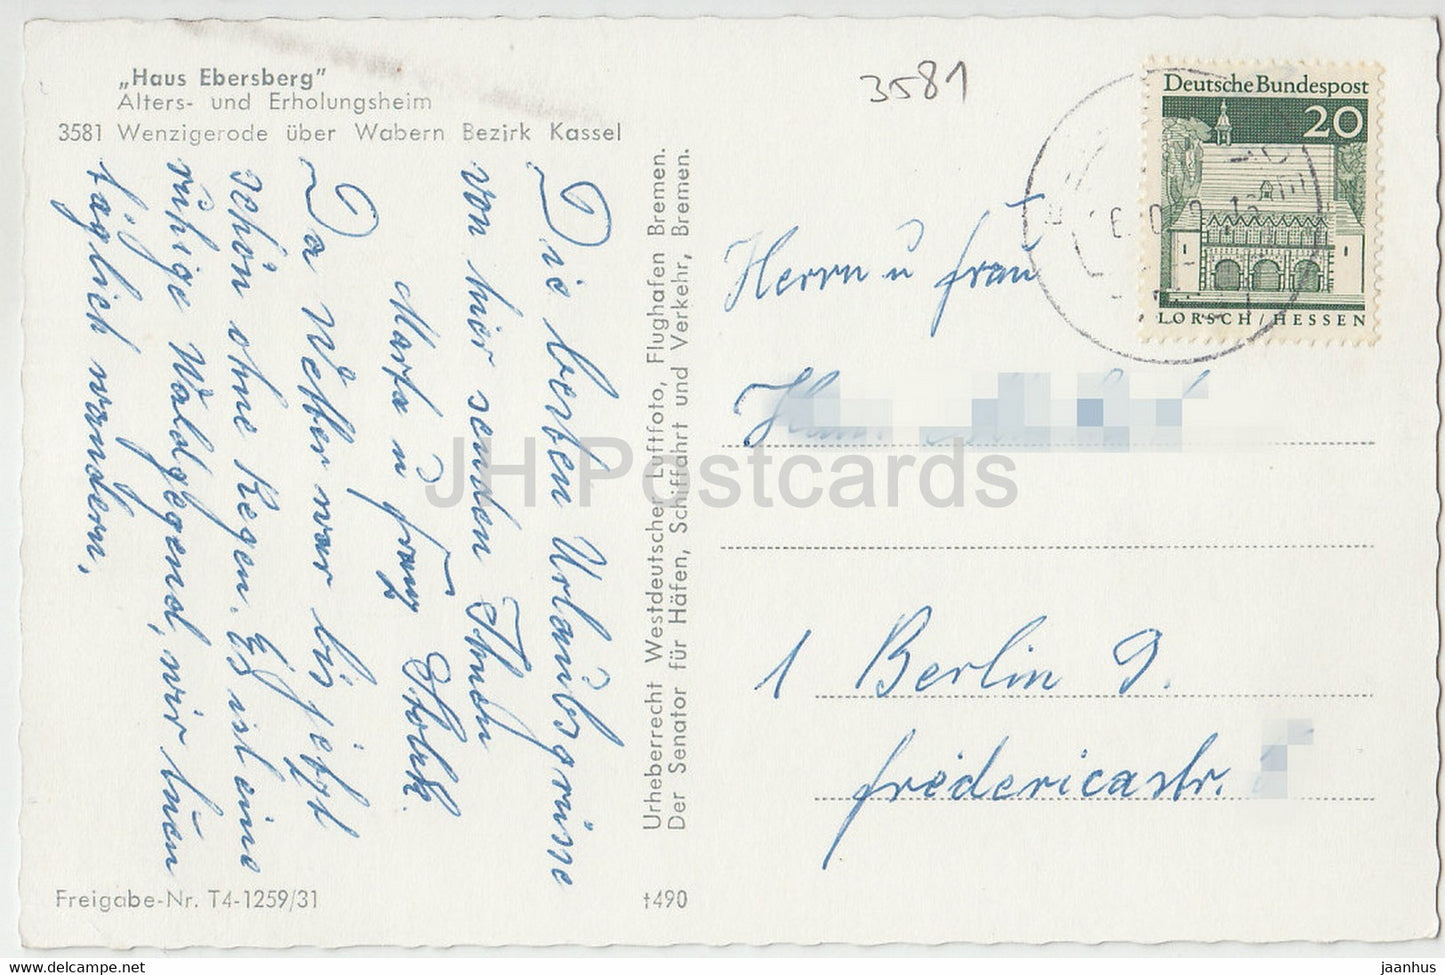 „Haus Ebersberg"
Alters- und Erholungsheim
3581 Wenzigerode über Wabern Bezirk Kassel
3581
Deutsche Bundespost
20
LORSCH / HESSEN
Die besten Urlaubsgrüsse
von hier senden Ihnen
Marta u Franz
Da Wetter war bis jetzt
schön ohne Regen. Es ist eine
ruhige Waldgegend, wir tuen
täglich wandern.
Urheberrecht Westdeutscher Luftfoto, Flughafen Bremen.
Der Senator für Häfen, Schiffahrt und Verkehr, Bremen.
Herrn u Frau
1 Berlin 9.
Fredericastr.
Freigabe-Nr. T4-1259/31
t490
JH Postcards
www.delcampe.net
jaanhus